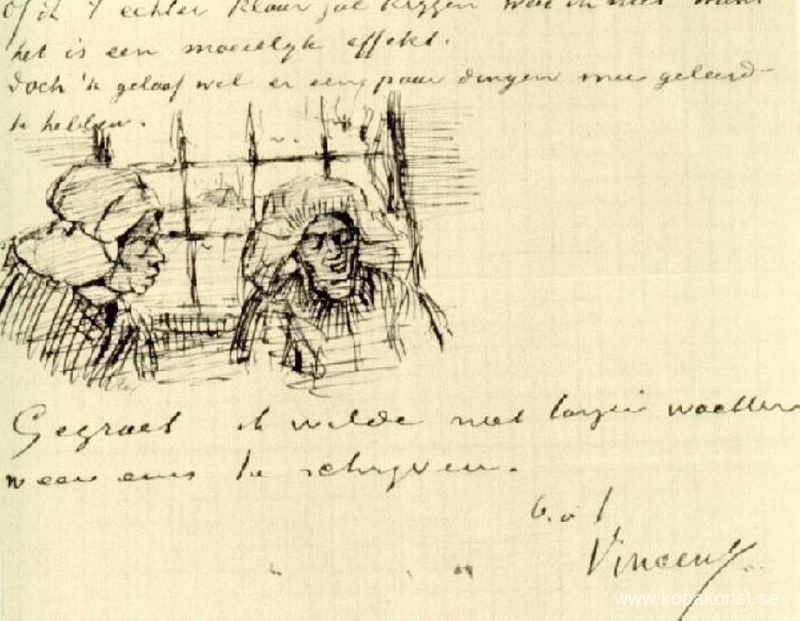 of ik 't echter klaar zal krygen weet ik niet want
het is een moeielyk effekt.
Doch 'k geloof wel er een paar dingen mee geleerd
te hebben.
Gegroet ik wilde niet langer wachten
weer eens te schryven.
b. à t
Vincent
www.kopakonst.se